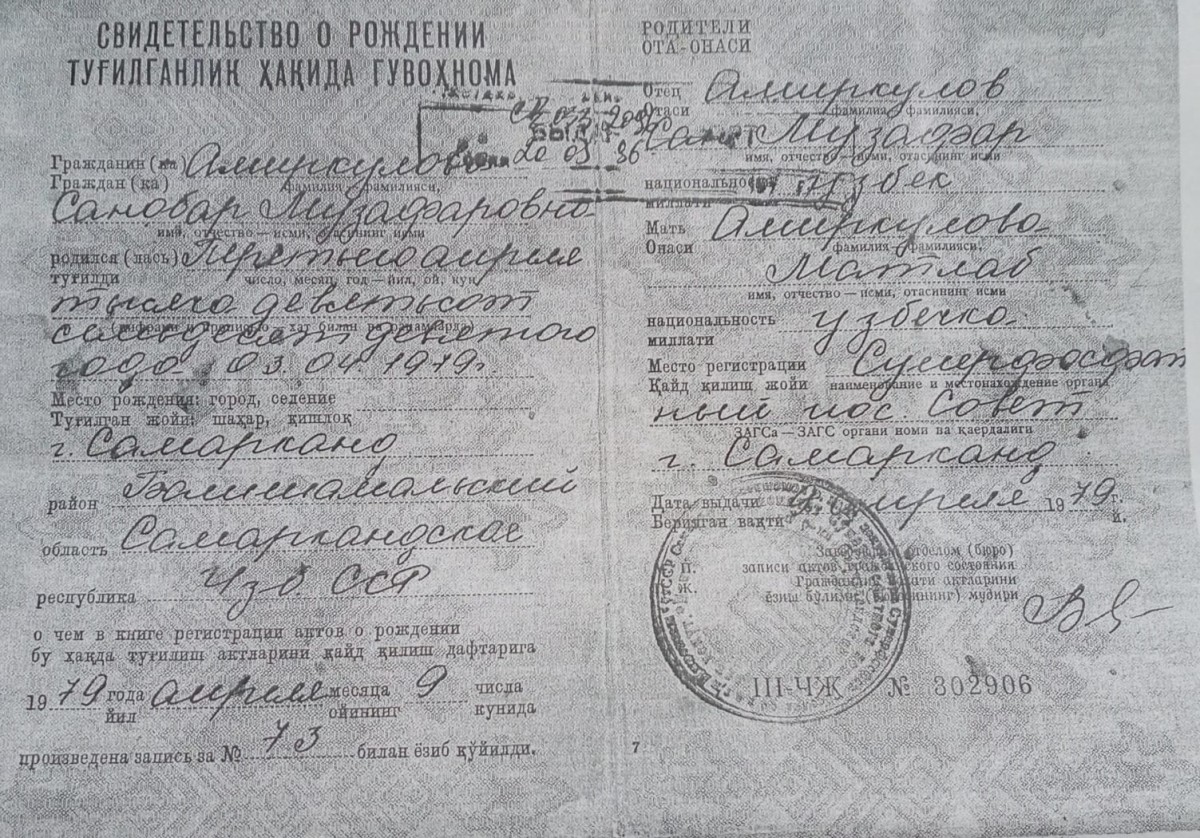 СВИДЕТЕЛЬСТВО О РОЖДЕНИИ
ТУҒИЛГАНЛИК ҲАҚИДА ГУВОҲНОМА
Гражданин (ка) Амиркулова
Граждан (ка) фамилия, фамилияси,
Санобар Музафаровна
имя, отчество — исми, отасининг исми
родился (лась) Третьего апреля
туғилди число, месяц, год — йил, ой, кун
тысяча девятьсот
(цифрами и прописью — хат билан ва рақамларда)
семьдесят девятого
года 03.04.1979г.
Место рождения: город, селение
Туғилган жойи: шаҳар, қишлоқ
г. Самарканд
район
область Самаркандская
республика Узб. ССР
о чем в книге регистрации актов о рождении
бу ҳақда туғилиш актларини қайд қилиш дафтарига
1979 года апреля месяца 9 числа
йил ойининг кунида
произведена запись за № 73 билан ёзиб қўйилди.
РОДИТЕЛИ
ОТА-ОНАСИ
Отец Амиркулов
Отаси фамилия, фамилияси,
Музафар
имя, отчество — исми, отасининг исми
национальность узбек
миллати
Мать Амиркулова
Онаси фамилия, фамилияси,
Матлаб
имя, отчество — исми, отасининг исми
национальность узбечка
миллати
Место регистрации Суперфосфат
Қайд қилиш жойи наименование и местонахождение органа
ный пос. Совет
ЗАГСа — ЗАГС органи номи ва қаердалиги
г. Самарканд
Дата выдачи апреля 1979 г.
Берилган вақти й.
Заведующий отделом (бюро)
П. записи актов гражданского состояния
Ж. Гражданлик ҳолати актларини
ёзиш бўлими (бюросининг) мудири
III-ЧЖ № 302906
7